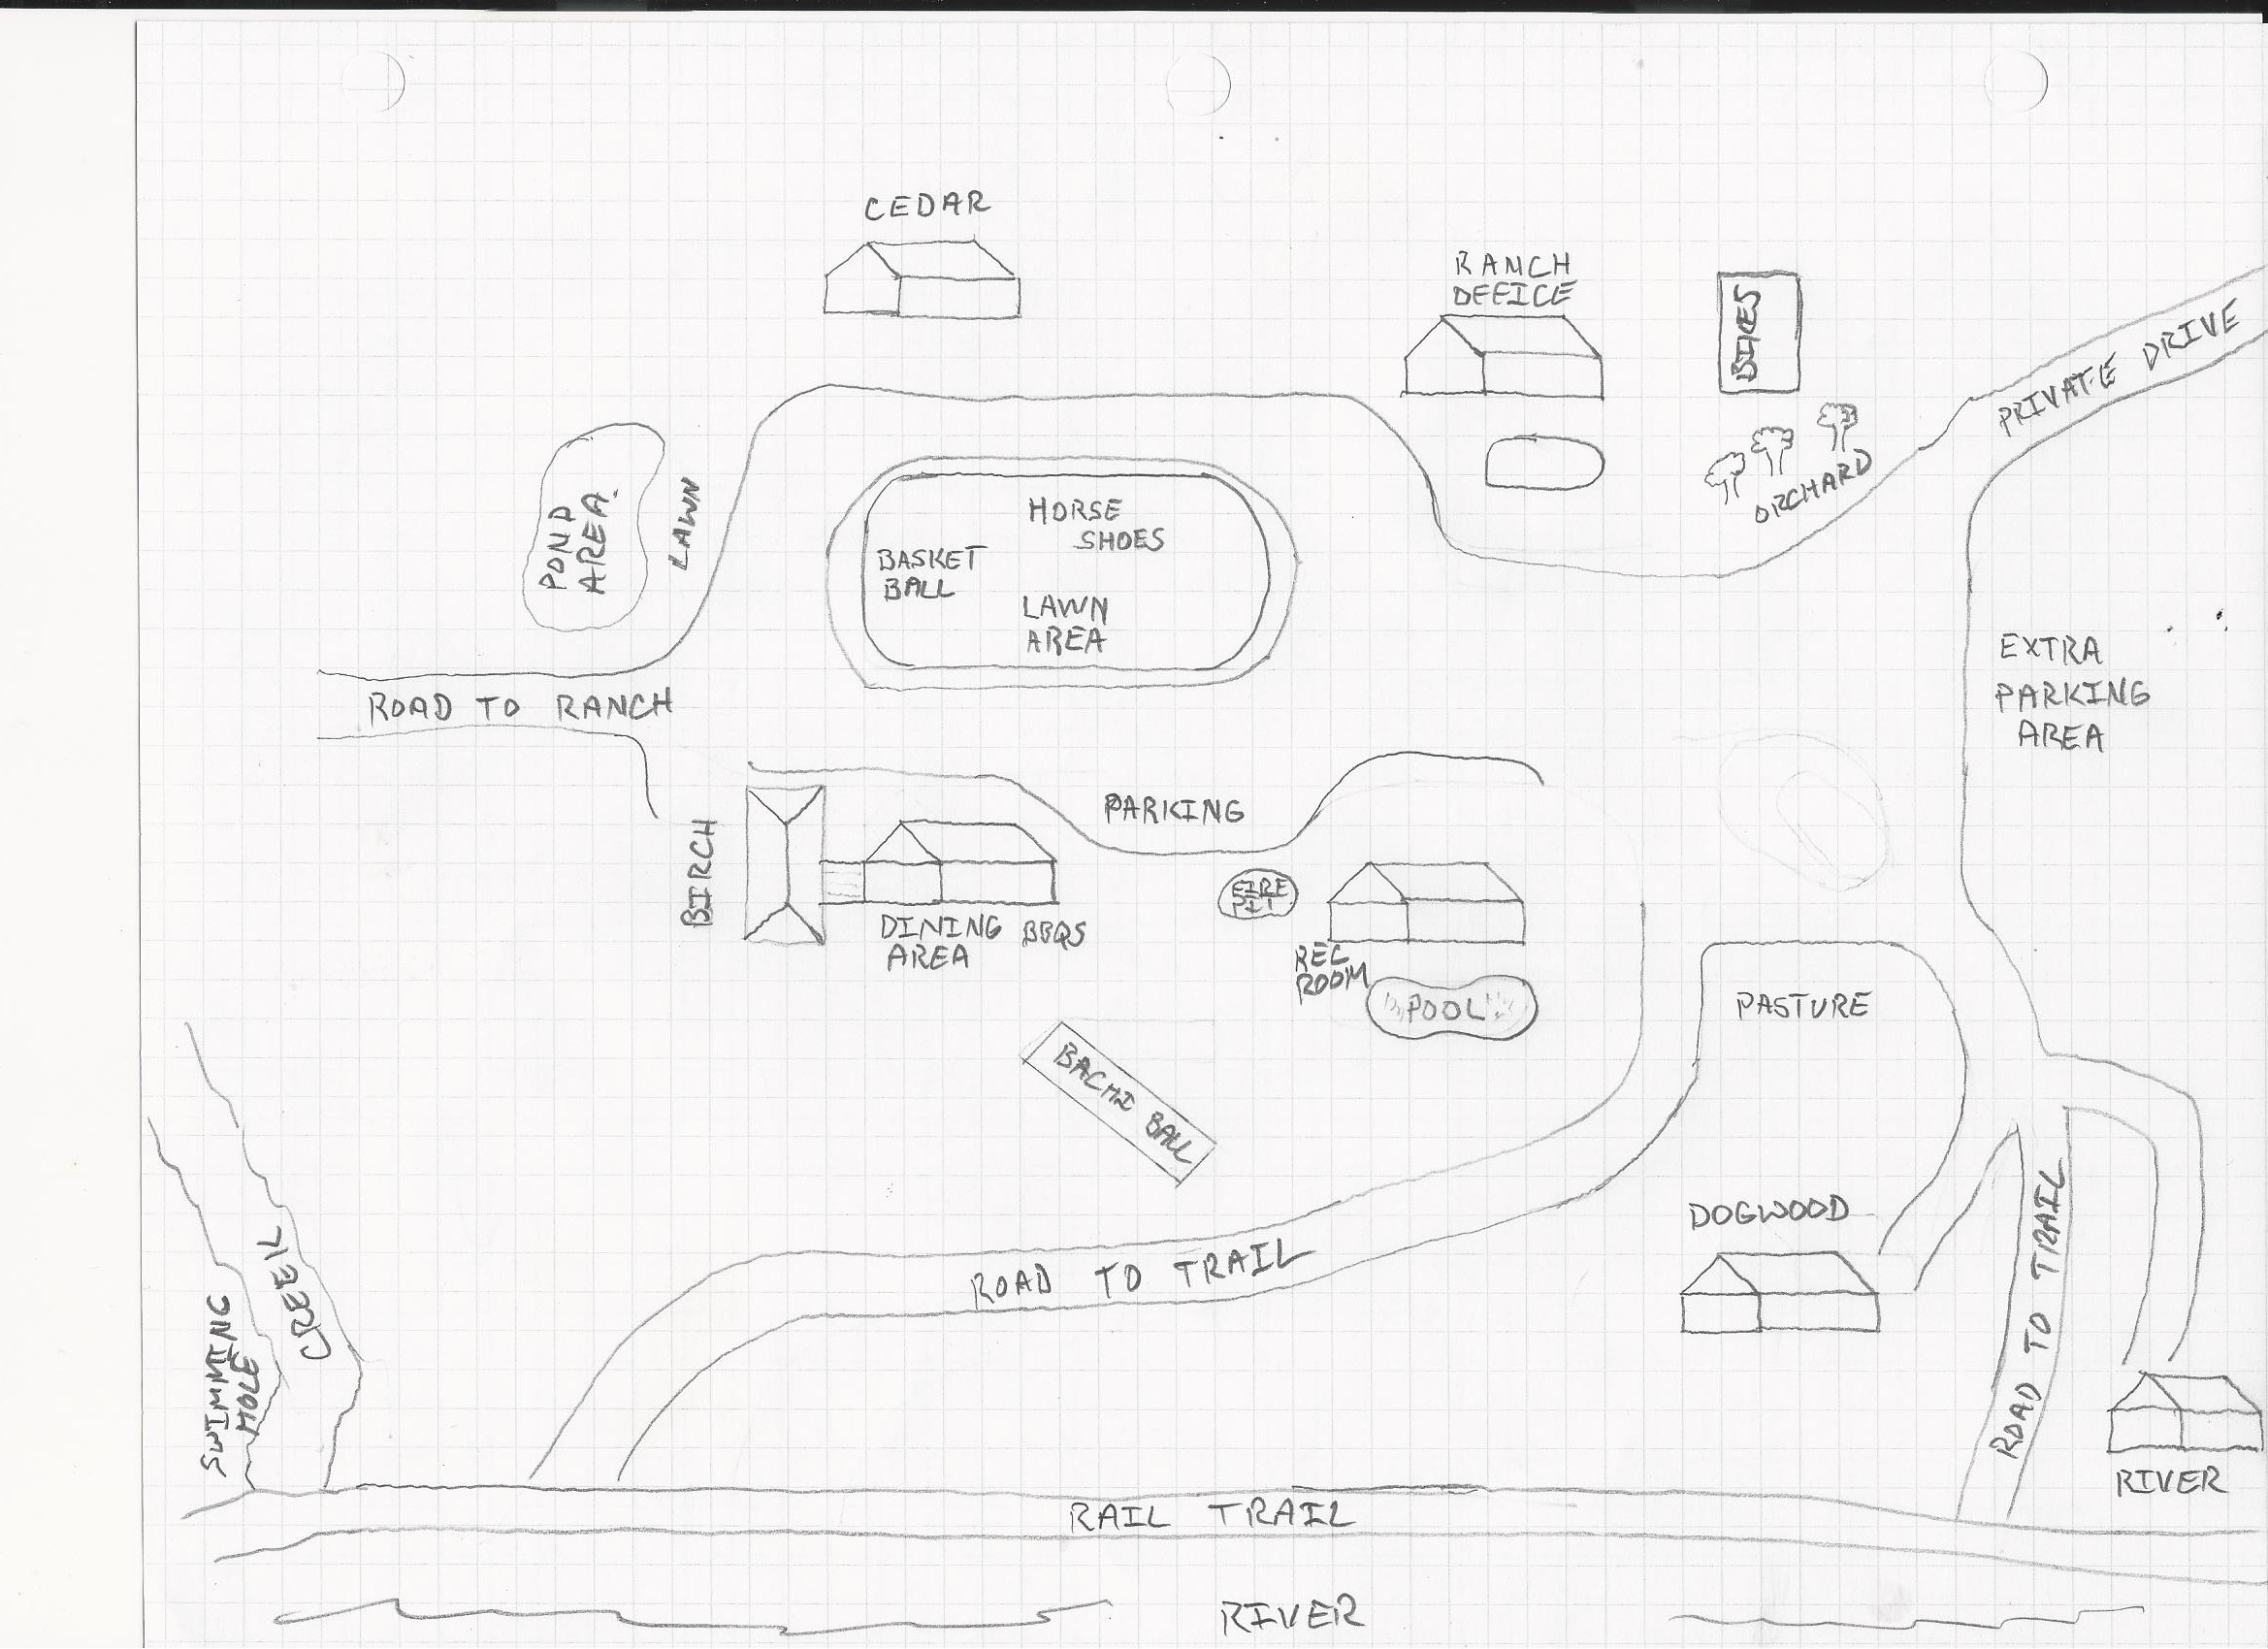 CEDAR
RANCH
OFFICE
BIKES
PRIVATE DRIVE
ORCHARD
POND
AREA
LAWN
HORSE
SHOES
BASKET
BALL
LAWN
AREA
ROAD TO RANCH
EXTRA
PARKING
AREA
PARKING
BIRCH
DINING
AREA
BBQS
FIRE
PIT
REC
ROOM
POOL
PASTURE
BACHI BALL
DOGWOOD
ROAD TO TRAIL
ROAD TO TRAIL
CREEK
SWIMMING
HOLE
RIVER
RAIL TRAIL
RIVER